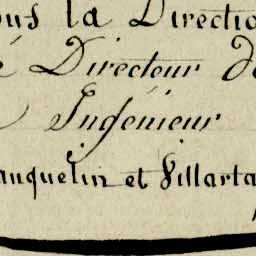 ous la Directio
é Directeur de
Ingénieur
anquelin et Villarta